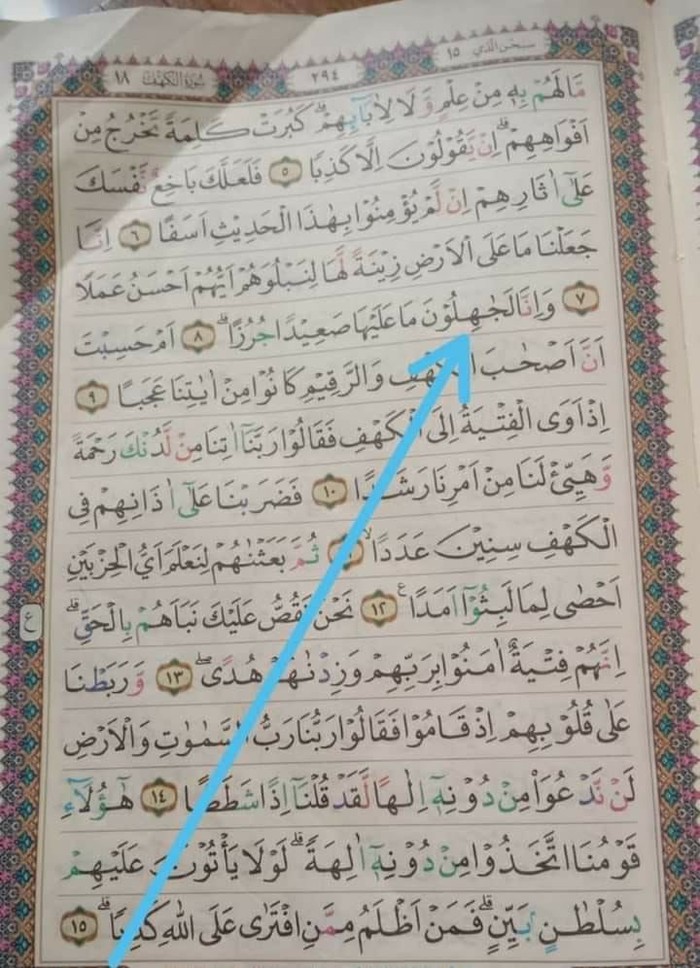 سبحن الذي ١٥
٢٩٤
سورة الكهف ١٨
مَا لَهُمْ بِهٖ مِنْ عِلْمٍ وَّلَا لِاٰبَاۤىِٕهِمْۗ كَبُرَتْ كَلِمَةً تَخْرُجُ مِنْ
اَفْوَاهِهِمْۗ اِنْ يَّقُوْلُوْنَ اِلَّا كَذِبًا ٥ فَلَعَلَّكَ بَاخِعٌ نَّفْسَكَ
عَلٰٓى اٰثَارِهِمْ اِنْ لَّمْ يُؤْمِنُوْا بِهٰذَا الْحَدِيْثِ اَسَفًا ٦ اِنَّا
جَعَلْنَا مَا عَلَى الْاَرْضِ زِيْنَةً لَّهَا لِنَبْلُوَهُمْ اَيُّهُمْ اَحْسَنُ عَمَلًا
٧ وَاِنَّا لَجٰهِلُوْنَ مَا عَلَيْهَا صَعِيْدًا جُرُزًاۗ ٨ اَمْ حَسِبْتَ
اَنَّ اَصْحٰبَ وَالرَّقِيْمِ كَانُوْا مِنْ اٰيٰتِنَا عَجَبًا ٩
اِذْ اَوَى الْفِتْيَةُ اِلَى الْكَهْفِ فَقَالُوْا رَبَّنَآ اٰتِنَا مِنْ لَّدُنْكَ رَحْمَةً
وَّهَيِّئْ لَنَا مِنْ اَمْرِنَا رَشَدًا ١٠ فَضَرَبْنَا عَلٰٓى اٰذَانِهِمْ فِى
الْكَهْفِ سِنِيْنَ عَدَدًاۙ ثُمَّ بَعَثْنٰهُمْ لِنَعْلَمَ اَيُّ الْحِزْبَيْنِ
اَحْصٰى لِمَا لَبِثُوْٓا اَمَدًا ࣖ ١٢ نَحْنُ نَقُصُّ عَلَيْكَ نَبَاَهُمْ بِالْحَقِّۗ
ع
اِنَّهُمْ فِتْيَةٌ اٰمَنُوْا بِرَبِّهِمْ وَزِدْنٰهُمْ هُدًىۖ ١٣ وَّرَبَطْنَا
عَلٰى قُلُوْبِهِمْ اِذْ قَامُوْا فَقَالُوْا رَبُّنَا رَبُّ السَّمٰوٰتِ وَالْاَرْضِ
لَنْ نَّدْعُوَا۟ مِنْ دُوْنِهٖٓ اِلٰهًا لَّقَدْ قُلْنَآ اِذًا شَطَطًا ١٤ هٰٓؤُلَاۤءِ
قَوْمُنَا اتَّخَذُوْا مِنْ دُوْنِهٖٓ اٰلِهَةًۗ لَوْلَا يَأْتُوْنَ عَلَيْهِمْ
بِسُلْطٰنٍۢ بَيِّنٍۗ فَمَنْ اَظْلَمُ مِمَّنِ افْتَرٰى عَلَى اللّٰهِ كَذِبًاۗ ١٥